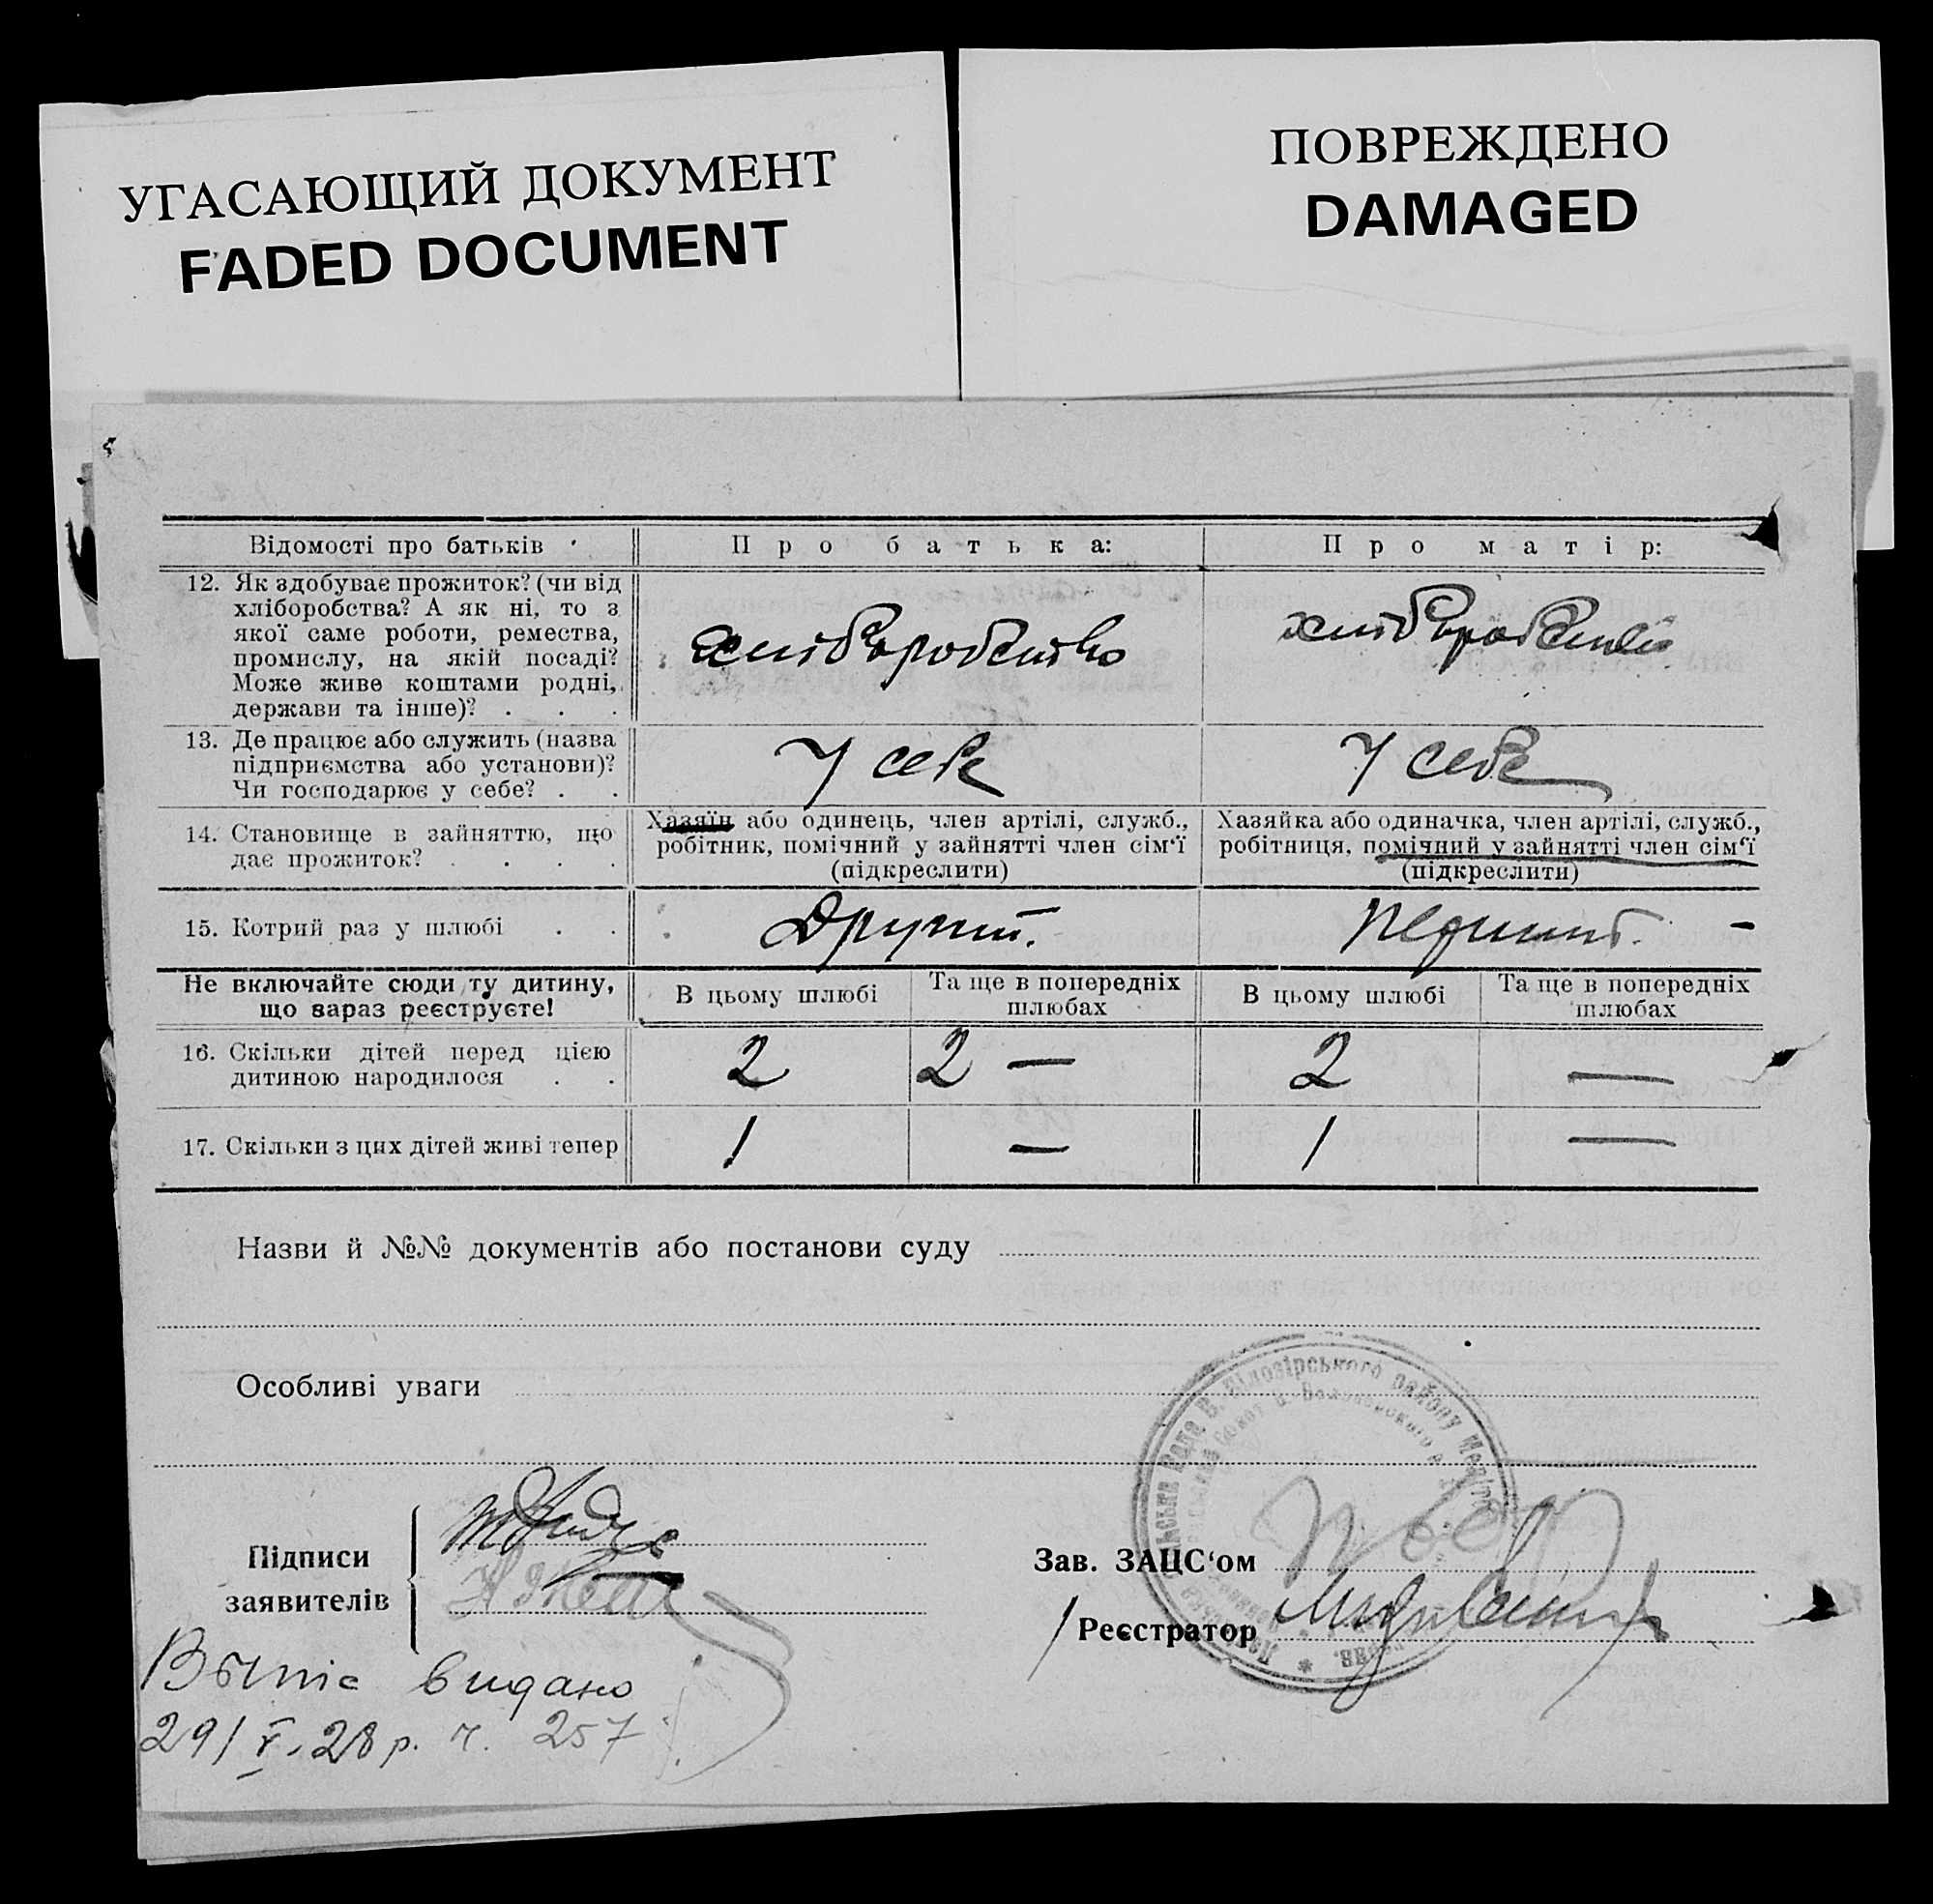 УГАСАЮЩИЙ ДОКУМЕНТ
FADED DOCUMENT
ПОВРЕЖДЕНО
DAMAGED
Відомості про батьків
Про батька:
Про матір:
12. Як здобуває прожиток? (чи від
хліборобства? А як ні, то з
якої саме роботи, ремества,
промислу, на якій посаді?
Може живе коштами родні,
держави та інше)? . . .
хліборобство
13. Де працює або служить (назва
підприємства або установи)?
Чи господарює у себе? . .
У себе
У себе
14. Становище в зайняттю, що
дає прожиток? . . . .
Хазяїн або одинець, член артілі, служб.,
робітник, помічний у зайнятті член сім'ї
(підкреслити)
Хазяйка або одиначка, член артілі, служб.,
робітниця, помічний у зайнятті член сім'ї
(підкреслити)
15. Котрий раз у шлюбі . .
Другий.
Не включайте сюди ту дитину,
що зараз реєструєте!
В цьому шлюбі
Та ще в попередніх
шлюбах
В цьому шлюбі
Та ще в попередніх
шлюбах
16. Скільки дітей перед цією
дитиною народилося . .
2
2 —
2
—
17. Скільки з цих дітей живі тепер
1
—
1
—
Назви й №№ документів або постанови суду
Особливі уваги
Підписи
заявителів
Зав. ЗАЦС'ом
Реєстратор
району
видано
29/V. 28 р. ч. 257